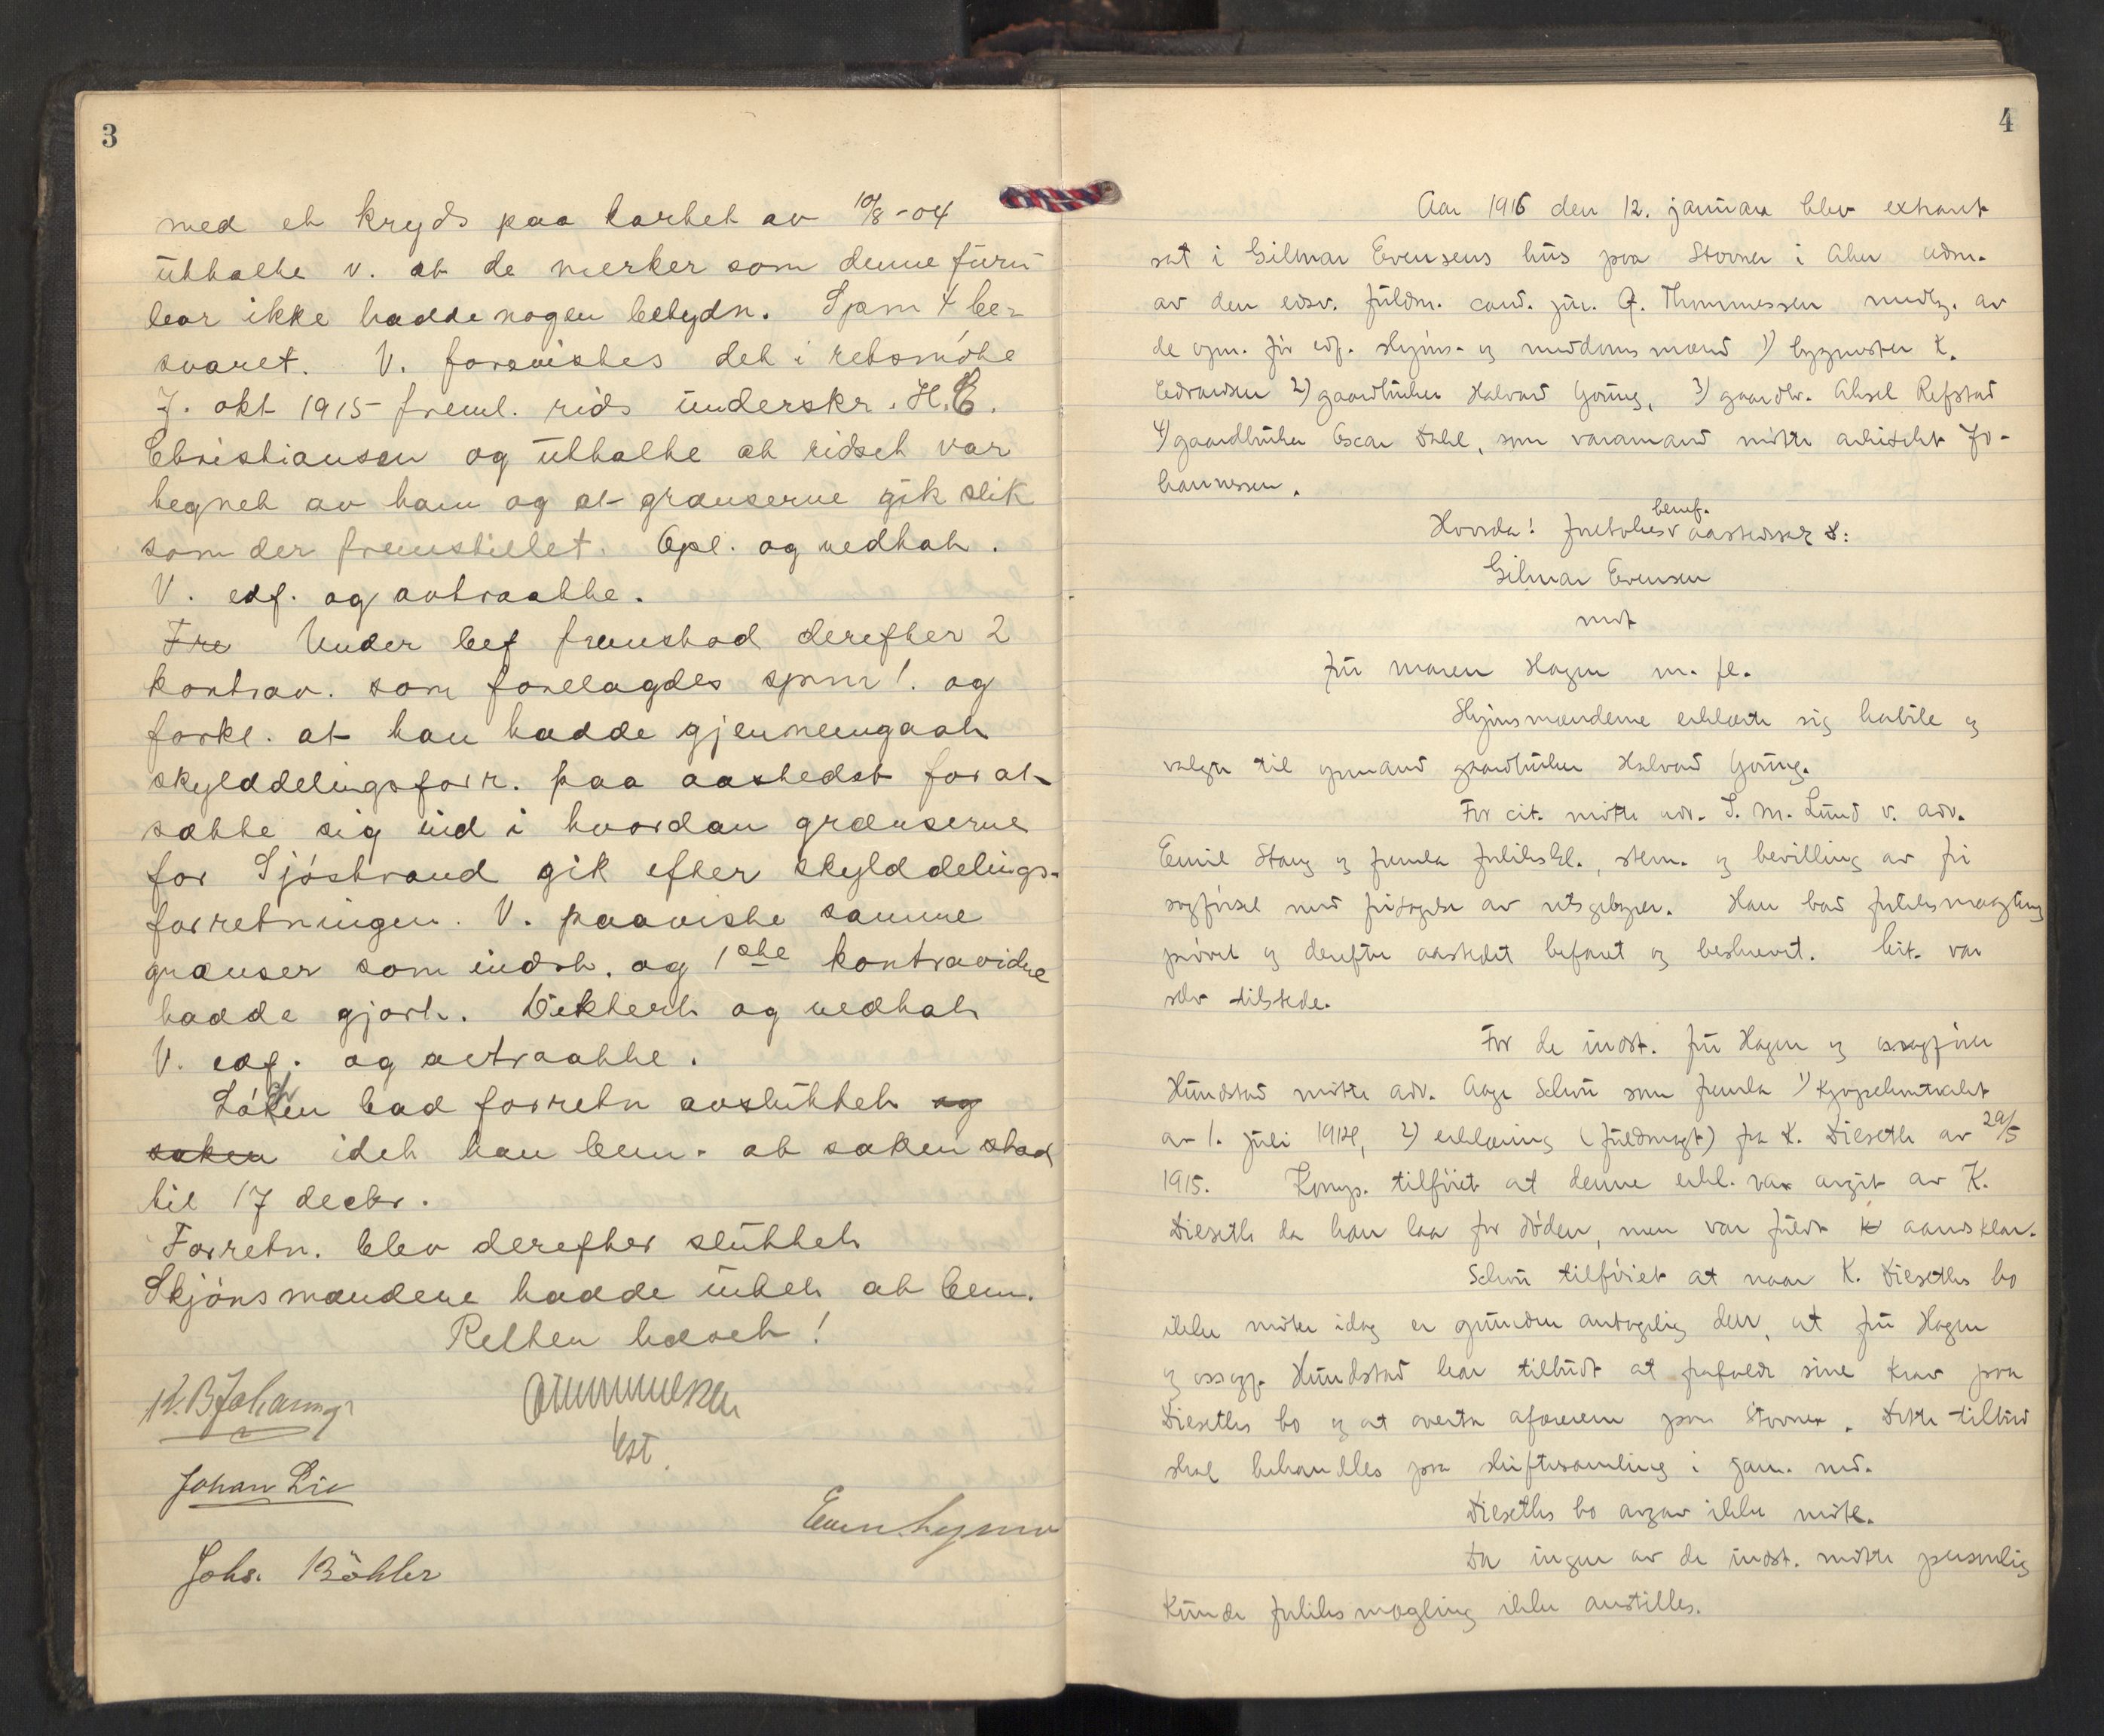 3
med et kryds paa kartet av 10/8-04
uttalte v. at de merker som denne furu
bar ikke hadde nogen betydn. Spm 4 be-
svaret. V. forevistes det i retsmöte
7. okt 1915 freml. rids underskr. H.C.
Christiansen og uttalte at ridset var
tegnet av ham og at grænserne gik slik
som der fremstillet. Opl. og vedtat.
V. edf. og avtraatte.
Fre Under bef fremstod derefter 2
kontrav. som forelagdes spm 1. og
forkl. at han hadde gjennemgaat
skylddelingsforr. paa aastedet for at
sætte sig ind i hvordan grænserne
for Sjöstrand gik efter skylddelings-
forretningen. V. paaviste samme
grænser som indst. og 1ste kontravidne
hadde gjort. Diktert og vedtat
V. edf. og avtraatte.
Löken bad forretn avsluttet og
saken idet han bem. at saken stod
til 17 decbr.
Forretn. blev derefter sluttet
Skjönsmændene hadde intet at bem.
Retten hævet!
K. B. Johannes
Johan Lie
Johs. Böhler
4
Aar 1916 den 12. januar blev extraret
sat i Gilmar Evensens hus paa Stovner i Aker
av den edsv. fuldm. cand. jur. A. Thommessen medtg. av
de opn. för edf. skjöns- og meddomsmænd 1) bygmester K.
Edvardsen 2) gaardbruker Halvard Göring, 3) gaardbr. Aksel Refstad
4) gaardbruker Oscar Dahl, som varamand mötte arkitekt Jo-
hannessen.
Hvorda! foretokes beruf. aastedssak 8:
Gilmar Evensen
mot
fru Maren Hagen m. fl.
Skjönsmændene erklærte sig habile og
valgte til opmand gaardbruker Halvard Göring.
For cit. mötte adv. S. M. Lund v. adv.
Emil Stang og fremla forlikskl., stevn. og bevilling av fri
sagförsel med fritagelse av retsgebyrer. Han bad forliksmægling
prövet og derefter aastedet befaret og beskrevet. Cit. var
selv tilstede.
For de indst. fru Hagen og ossagförer
Hundstad mötte adv. Aage Schou som fremla 1) kjøpekontrakt
av 1. juli 1914, 2) erklæring (fuldmagt) fra K. Dieseth av 29/5
1915. Komp. tilföiet at denne erkl. var avgit av K.
Dieseth da han laa for döden, men var fuldt aandsklar.
Schou tilföiet at naar K. Dieseths bo
ikke möter idag er grunden antagelig den, at fru Hagen
og ossagf. Hundstad har tilbudt at frafalde sine krav paa
Dieseths bo og at overta affæren paa Stovner. Dette tilbud
skal behandles paa skiftesamling i jan. md.
Dieseths bo avgav ikke möte.
Da ingen av de indst. mötte personlig
kunde forliksmægling ikke anstilles.